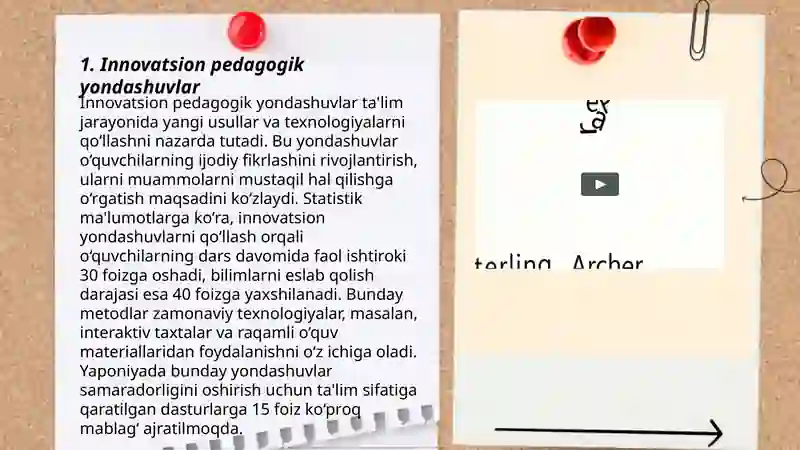 1. Innovatsion pedagogik
yondashuvlar
Innovatsion pedagogik yondashuvlar ta'lim
jarayonida yangi usullar va texnologiyalarni
qo‘llashni nazarda tutadi. Bu yondashuvlar
o‘quvchilarning ijodiy fikrlashini rivojlantirish,
ularni muammolarni mustaqil hal qilishga
o‘rgatish maqsadini ko‘zlaydi. Statistik
ma'lumotlarga ko‘ra, innovatsion
yondashuvlarni qo‘llash orqali
o‘quvchilarning dars davomida faol ishtiroki
30 foizga oshadi, bilimlarni eslab qolish
darajasi esa 40 foizga yaxshilanadi. Bunday
metodlar zamonaviy texnologiyalar, masalan,
interaktiv taxtalar va raqamli o‘quv
materiallaridan foydalanishni o‘z ichiga oladi.
Yaponiyada bunday yondashuvlar
samaradorligini oshirish uchun ta'lim sifatiga
qaratilgan dasturlarga 15 foiz ko‘proq
mablag‘ ajratilmoqda.
terling Archer